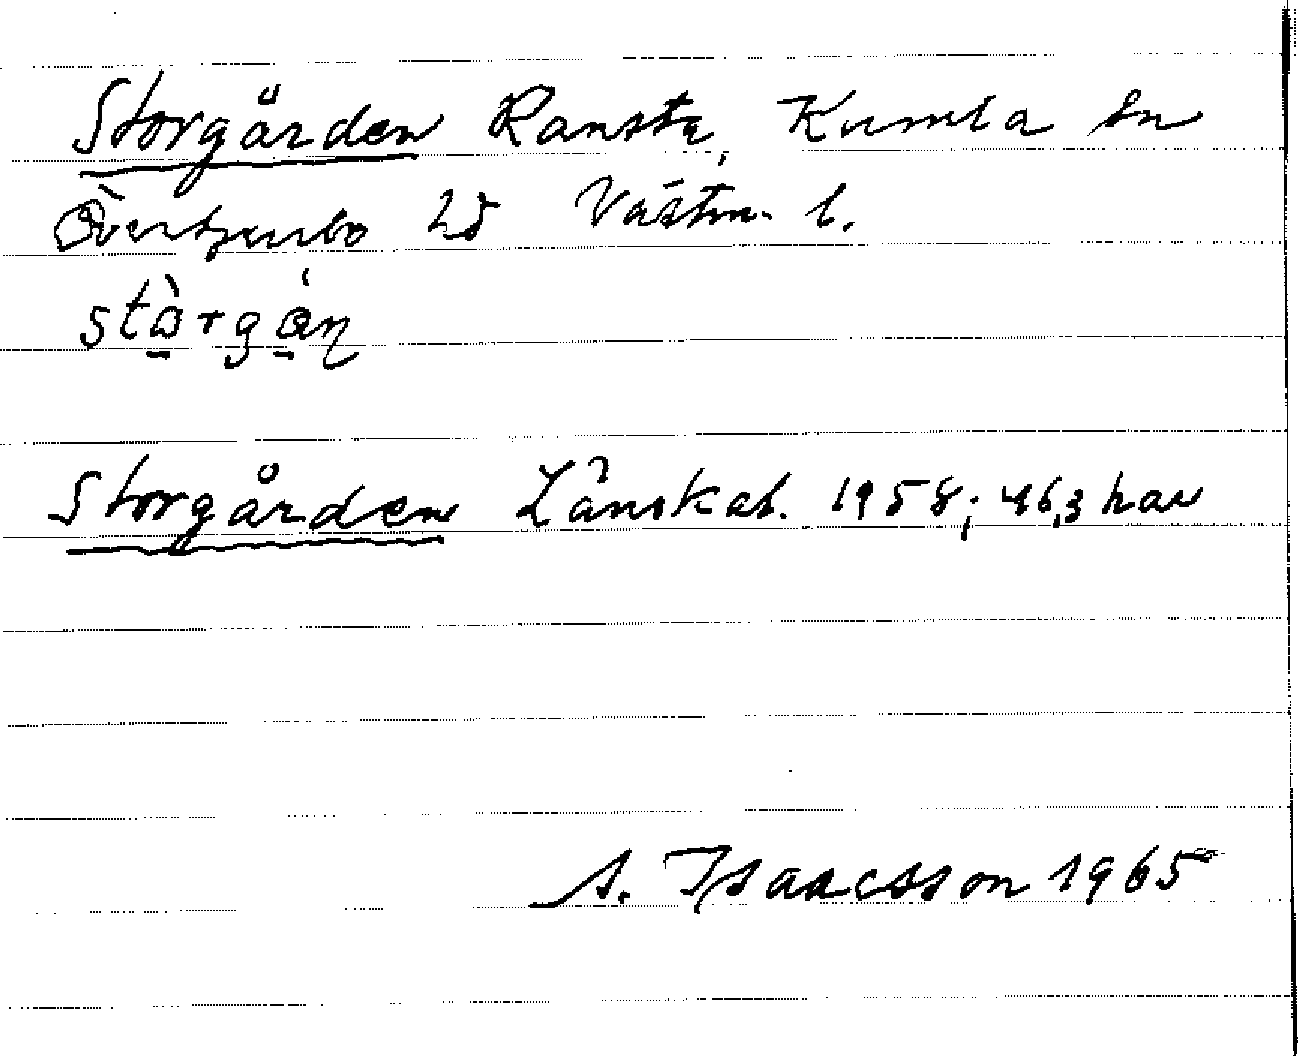 Storgården Ransta, Kumla sn
Övertjurbo hd Västm. l.
stòrgán
Storgården Länskal. 1958; 46,3 har
A. Isaacsson 1965